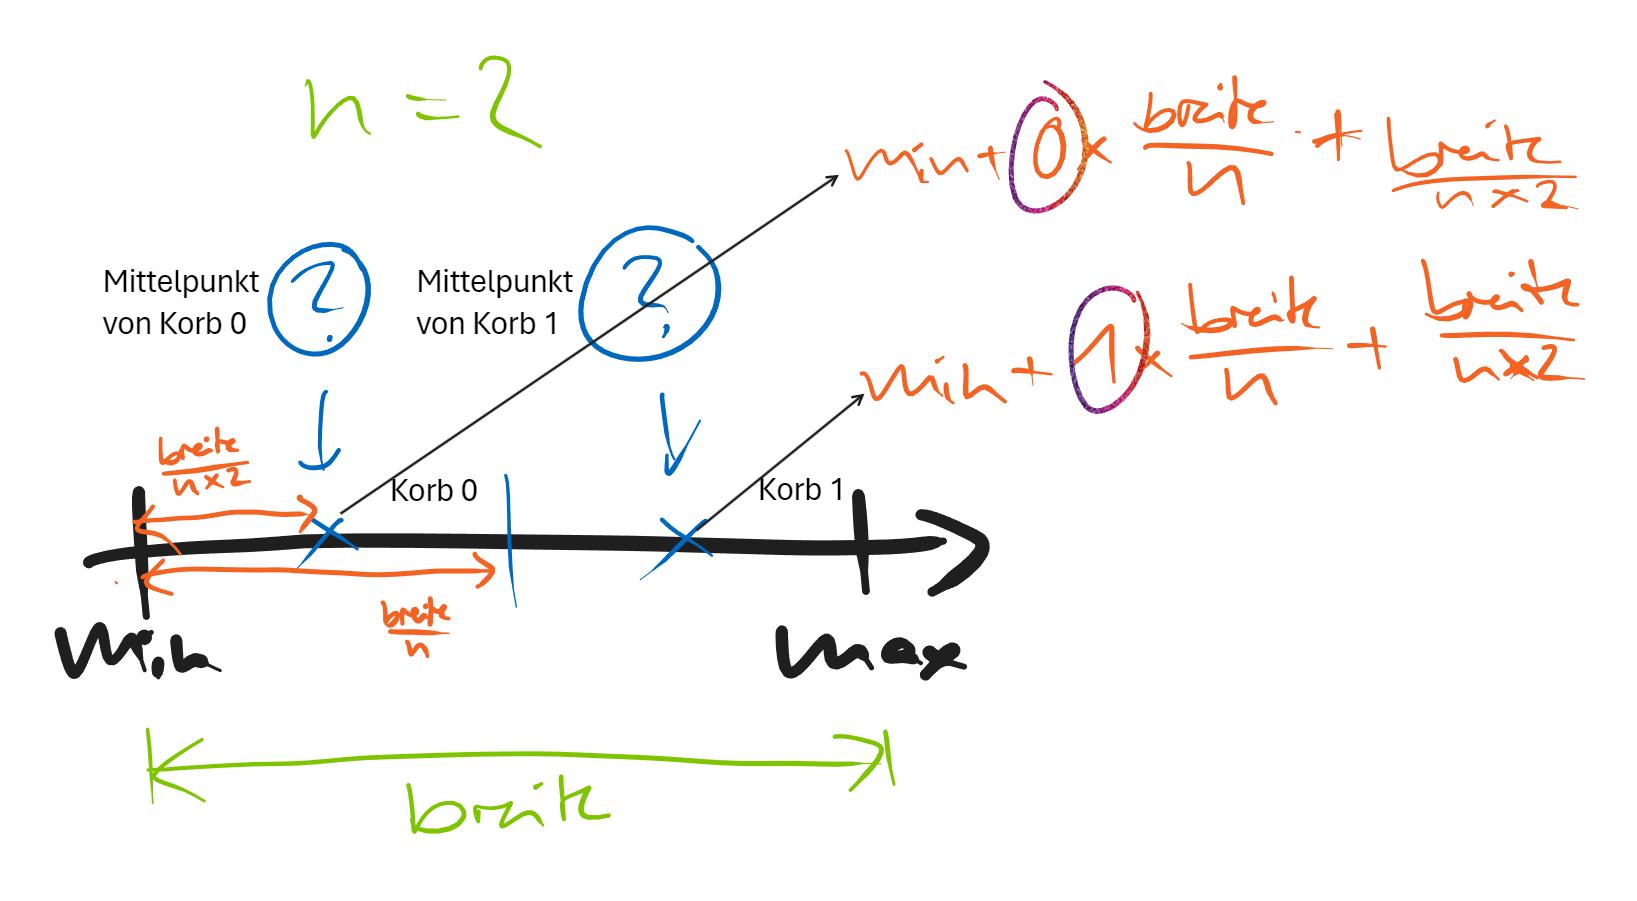 n = 2
min + 0 × breite/n + breite/n×2
Mittelpunkt von Korb 0
?
Mittelpunkt von Korb 1
?
min + 1 × breite/n + breite/n×2
breite/n×2
Korb 0
Korb 1
breite/n
min
max
breite